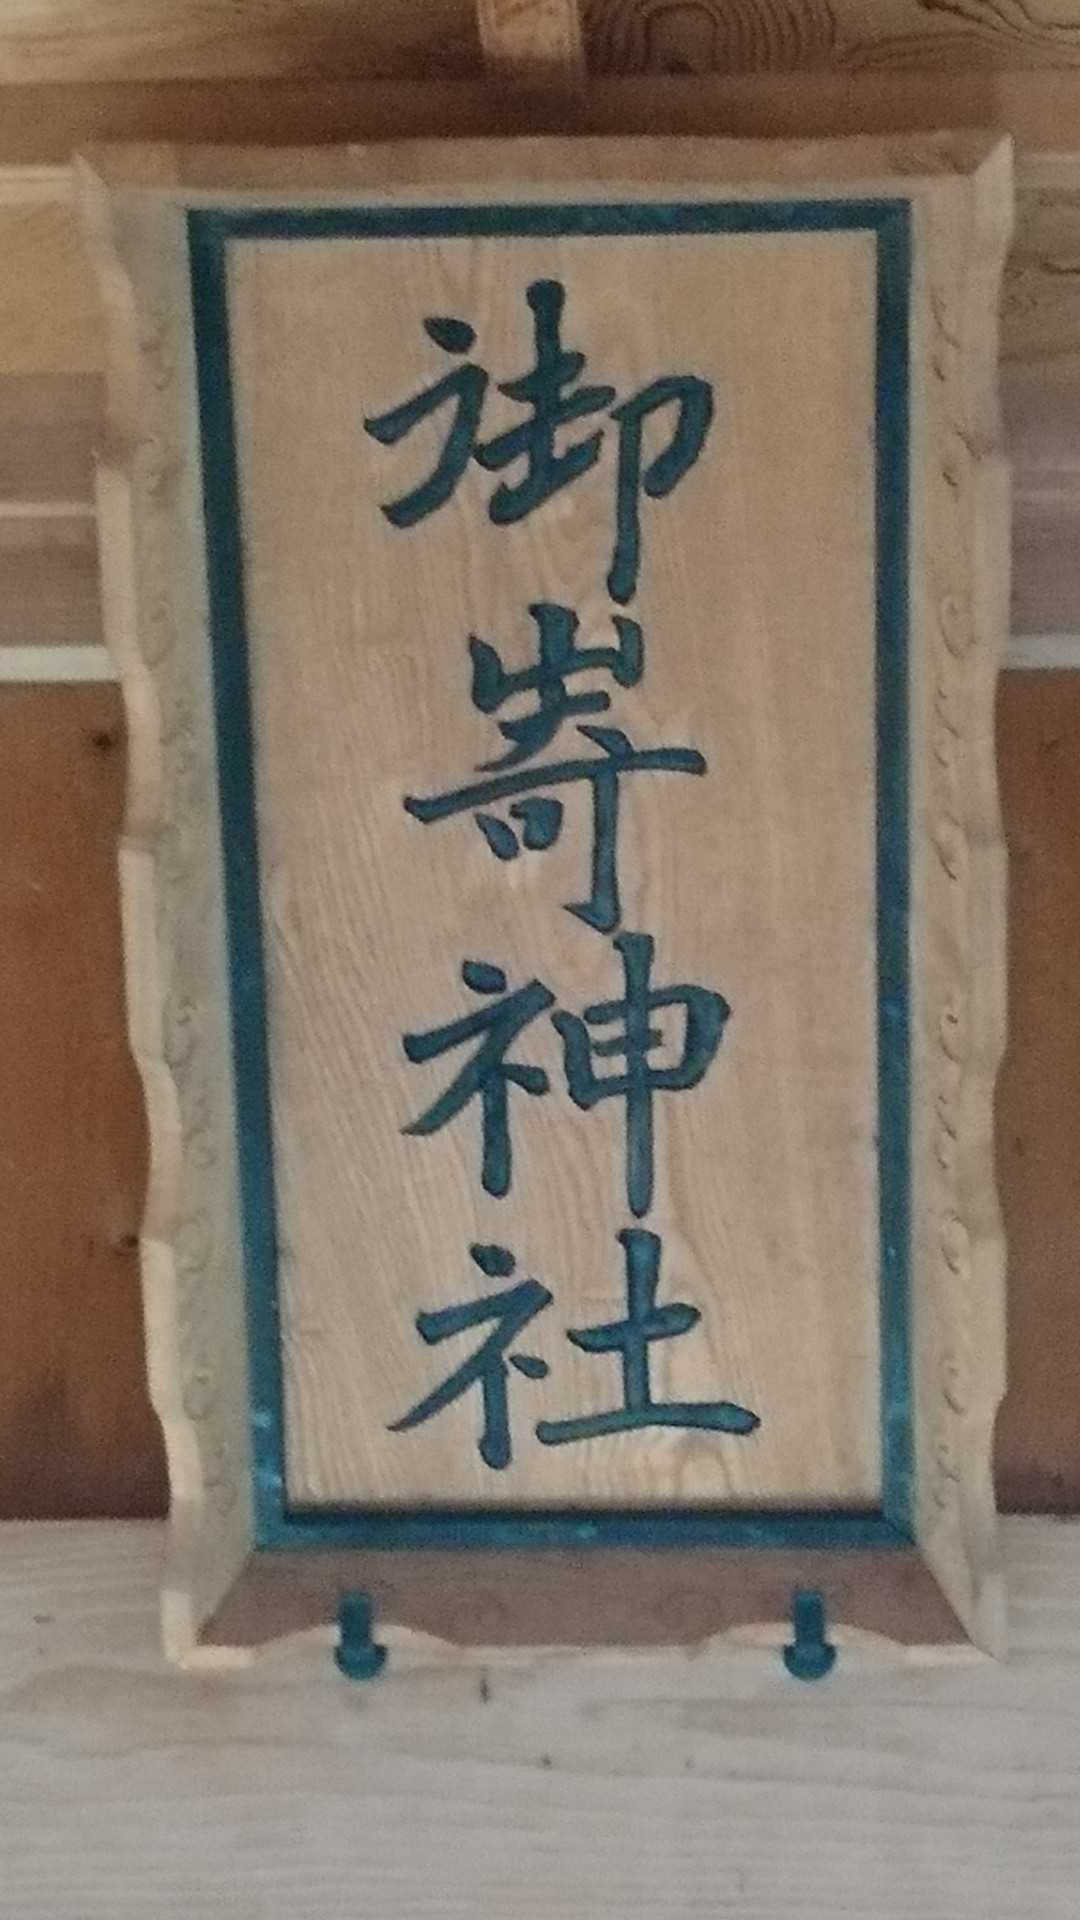 御嵜神社